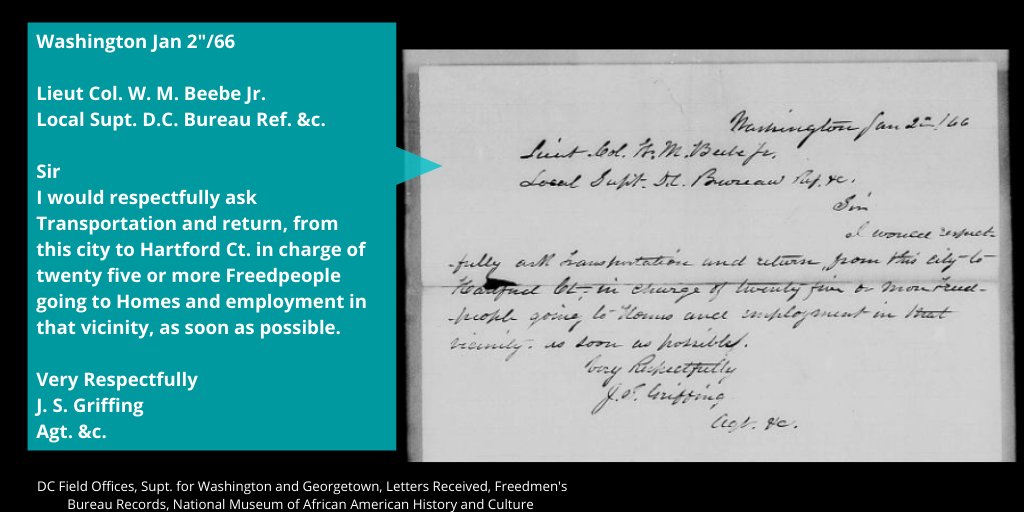 Washington Jan 2"/66
Lieut Col. W. M. Beebe Jr.
Local Supt. D.C. Bureau Ref. &c.
Sir
I would respectfully ask
Transportation and return, from
this city to Hartford Ct. in charge of
twenty five or more Freedpeople
going to Homes and employment in
that vicinity, as soon as possible.
Very Respectfully
J. S. Griffing
Agt. &c.
Washington Jan 2"/66
Lieut. Col. W. M. Beebe Jr.
Local Supt. D.C. Bureau Ref. &c.
Sir
I would respect-
-fully ask Transportation and return, from this city to
Hartford Ct., in charge of twenty five or more Freed-
-people going to Homes and employment in that
vicinity. as soon as possible.
Very Respectfully
J. S. Griffing
Agt. &c.
DC Field Offices, Supt. for Washington and Georgetown, Letters Received, Freedmen's
Bureau Records, National Museum of African American History and Culture